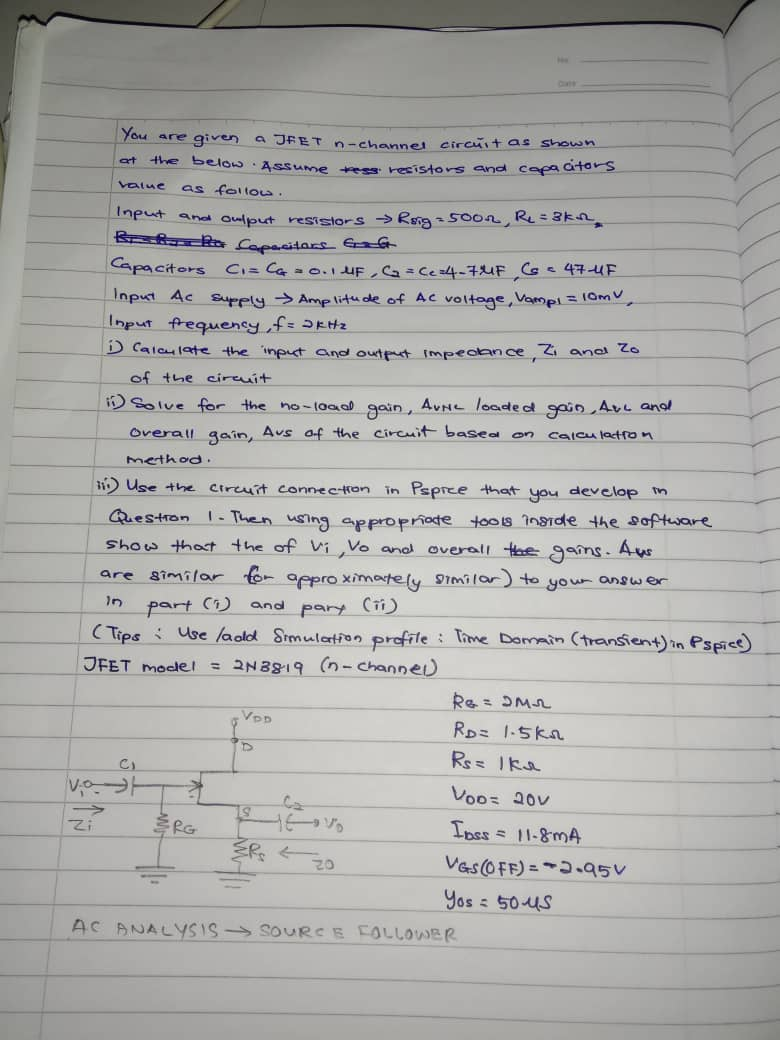 No:
Date
You are given a JFET n-channel circuit as shown
at the below. Assume resistors and capacitors
value as follow.
Input and output resistors → Rsig = 500Ω, RL = 3kΩ,
Capacitors
Capacitors C1 = CG = 0.1 μF, C2 = Cc = 4.7 μF, Cs = 47 μF
Input AC supply → Amplitude of AC voltage, Vampl = 10mV,
Input frequency, f = 2kHz
i) Calculate the input and output impedance, Zi and Zo
of the circuit
ii) Solve for the no-load gain, AVNL loaded gain, AVL and
overall gain, Avs of the circuit based on calculation
method.
iii) Use the circuit connection in Pspice that you develop in
Question 1. Then using appropriate tools inside the software
show that the of Vi, Vo and overall the gains. Avs
are similar for approximately similar) to your answer
in part (i) and part (ii)
(Tips : Use /add Simulation profile : Time Domain (transient) in Pspice)
JFET model = 2N3819 (n-channel)
RG = 2MΩ
RD = 1.5kΩ
RS = 1kΩ
VDD = 20V
IDSS = 11.8mA
VGS(OFF) = -2.95V
yos = 50μS
VDD
D
C1
Vi
Zi
RG
S
C2
Vo
Rs
Zo
AC ANALYSIS → SOURCE FOLLOWER